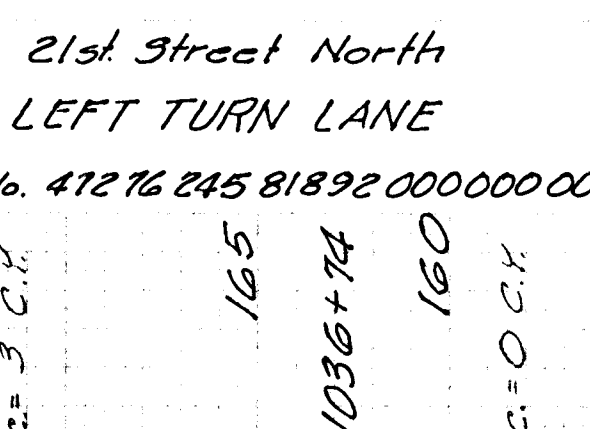 21st. Street North
LEFT TURN LANE
No. 472 76 245 81892 000000 00
= 3 C.Y.
165
1036+74
160
c. = 0 C.Y.